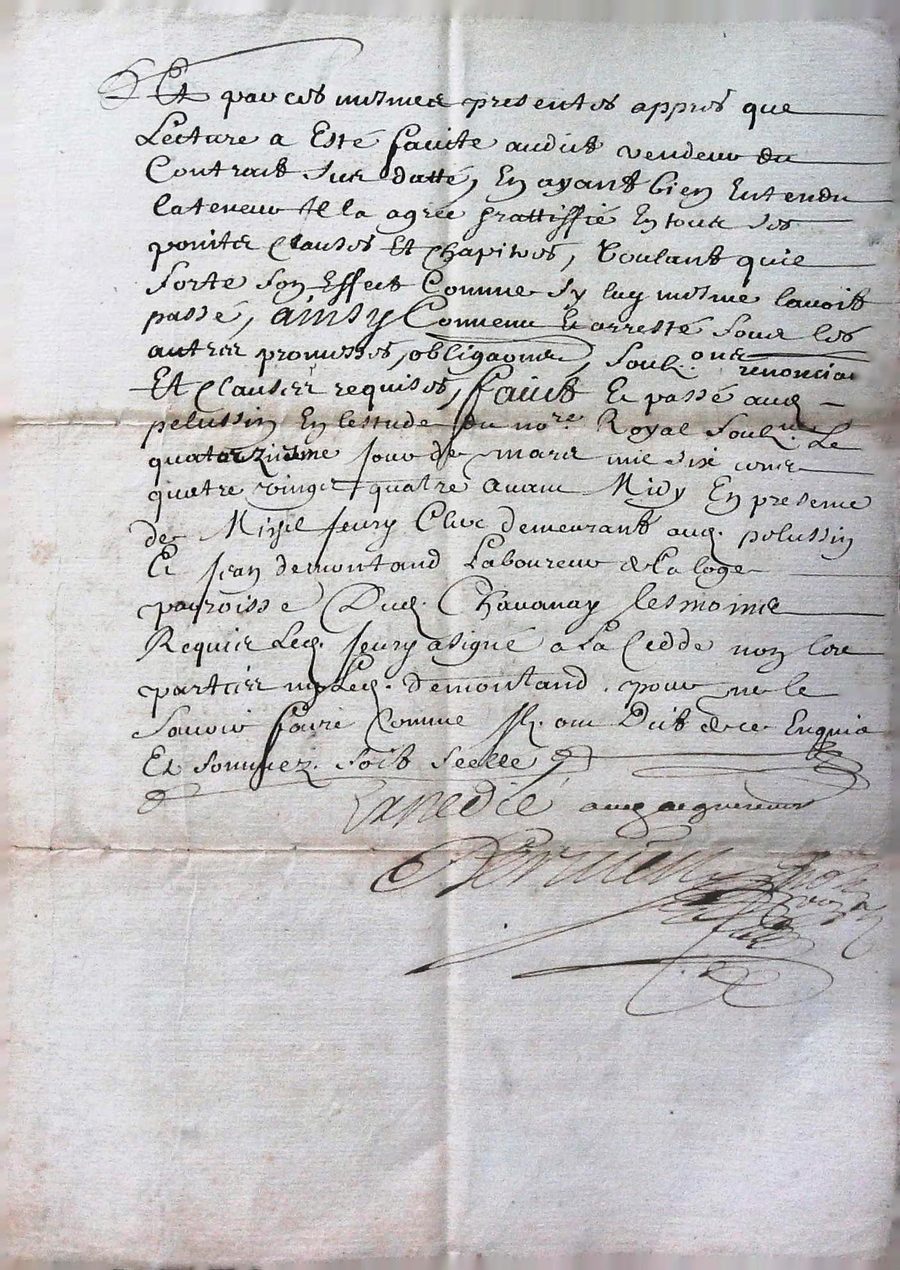 Et par ces mesmes presentes appres que
Lecture a Esté faicte audict vendeur du
Contract sus datté, En ayant bien Entendu
la teneur Il la agréé grattiffié En tous ses
points clauses Et Chapitres, Voulant quie
sorte son Effect Comme sy luy mesme lavoit
passé, ainsy Convenu & arresté soubs les
autres promesses, obligaons, soub.ons renonciaon
Et clauses requises, faict & passé aud.
pelussin En lestude du no.re Royal soubz.né Le
quatorziesme jour de mars mil six cens
quatre vingt quatre avant Midy En presence
de Michel feury Clerc demeurant aud. pelussin
Et Jean demontand Laboureur de La loge
parroisse Dud. Chavanay tesmoins
Requis Led. feury a signé a La Cedde non les
parties ny Led. demontand. pour ne le
scavoir faire Comme Ils ont Dict de ce Enquis
Et sommez. soit scellé
Expedié aud acquereur